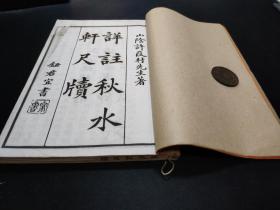 山陰許葭村先生著
詳註秋水
軒尺牘
鈕君宜書